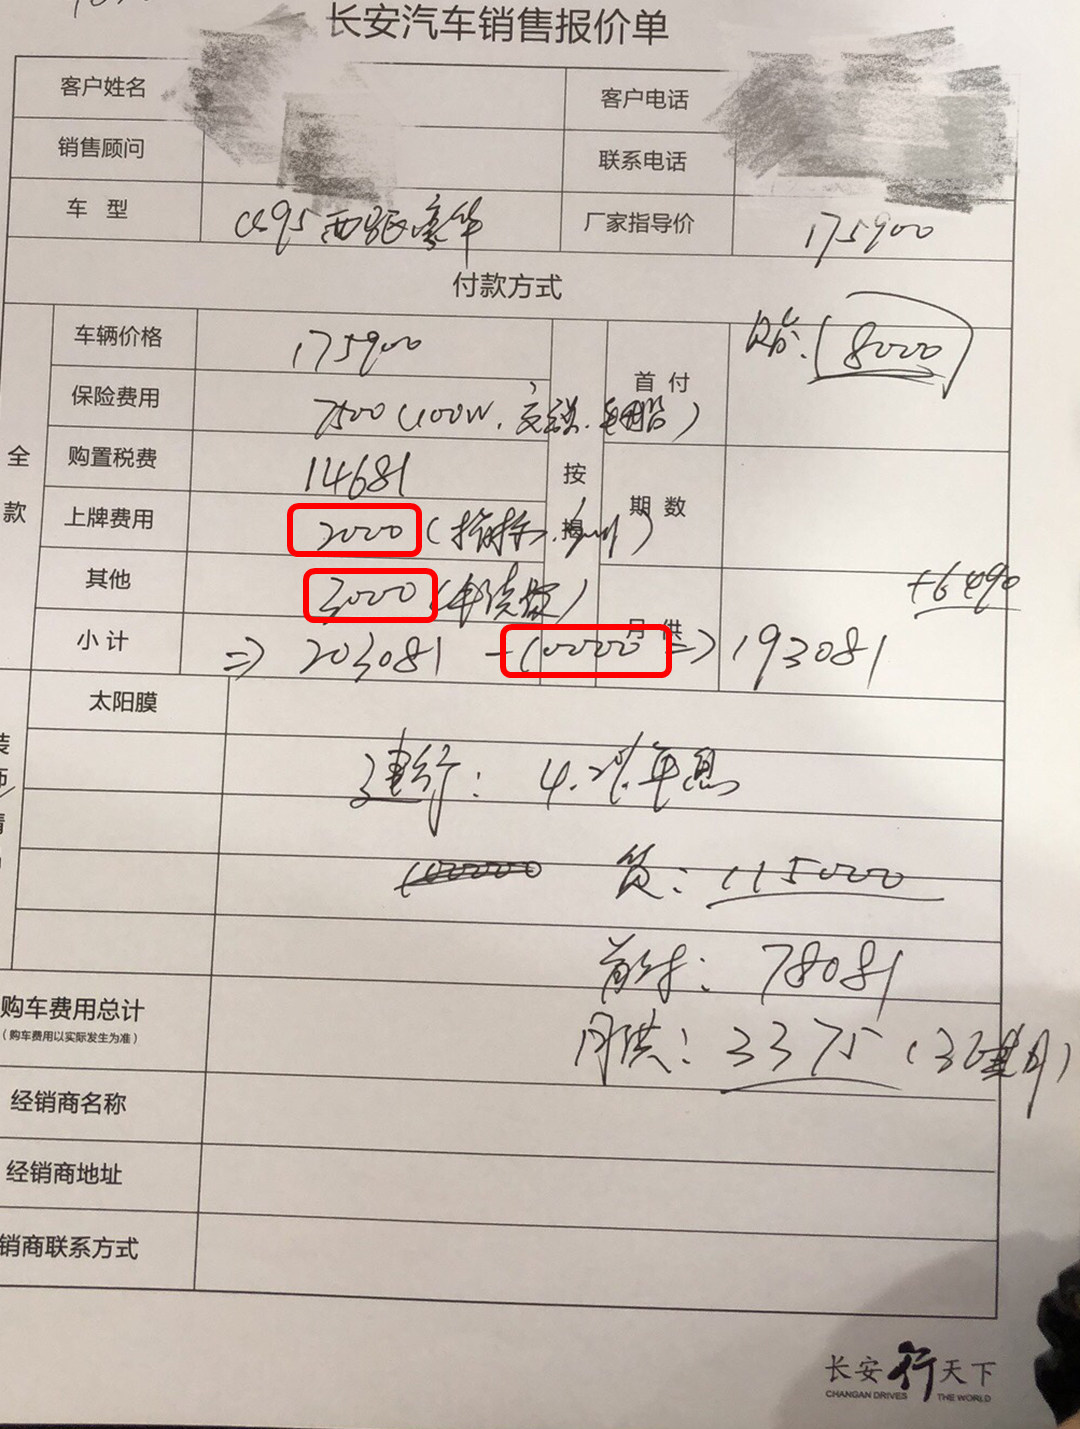 长安汽车销售报价单
客户姓名 客户电话
销售顾问 联系电话
车 型 CS95 四驱豪华 厂家指导价 175900
付款方式
全款
车辆价格 175900
保险费用 7500(100W,
购置税费 14681
上牌费用 2000(指标,
其他 3000(
小计 => 203081 -10000 => 193081
按揭
首付 8000
期数
月供 +6490
太阳膜
建行: 4.2% 年息
贷: 115000
首付: 78081
月供: 3375(36
购车费用总计
(购车费用以实际发生为准)
经销商名称
经销商地址
销商联系方式
长安行天下
CHANGAN DRIVES THE WORLD